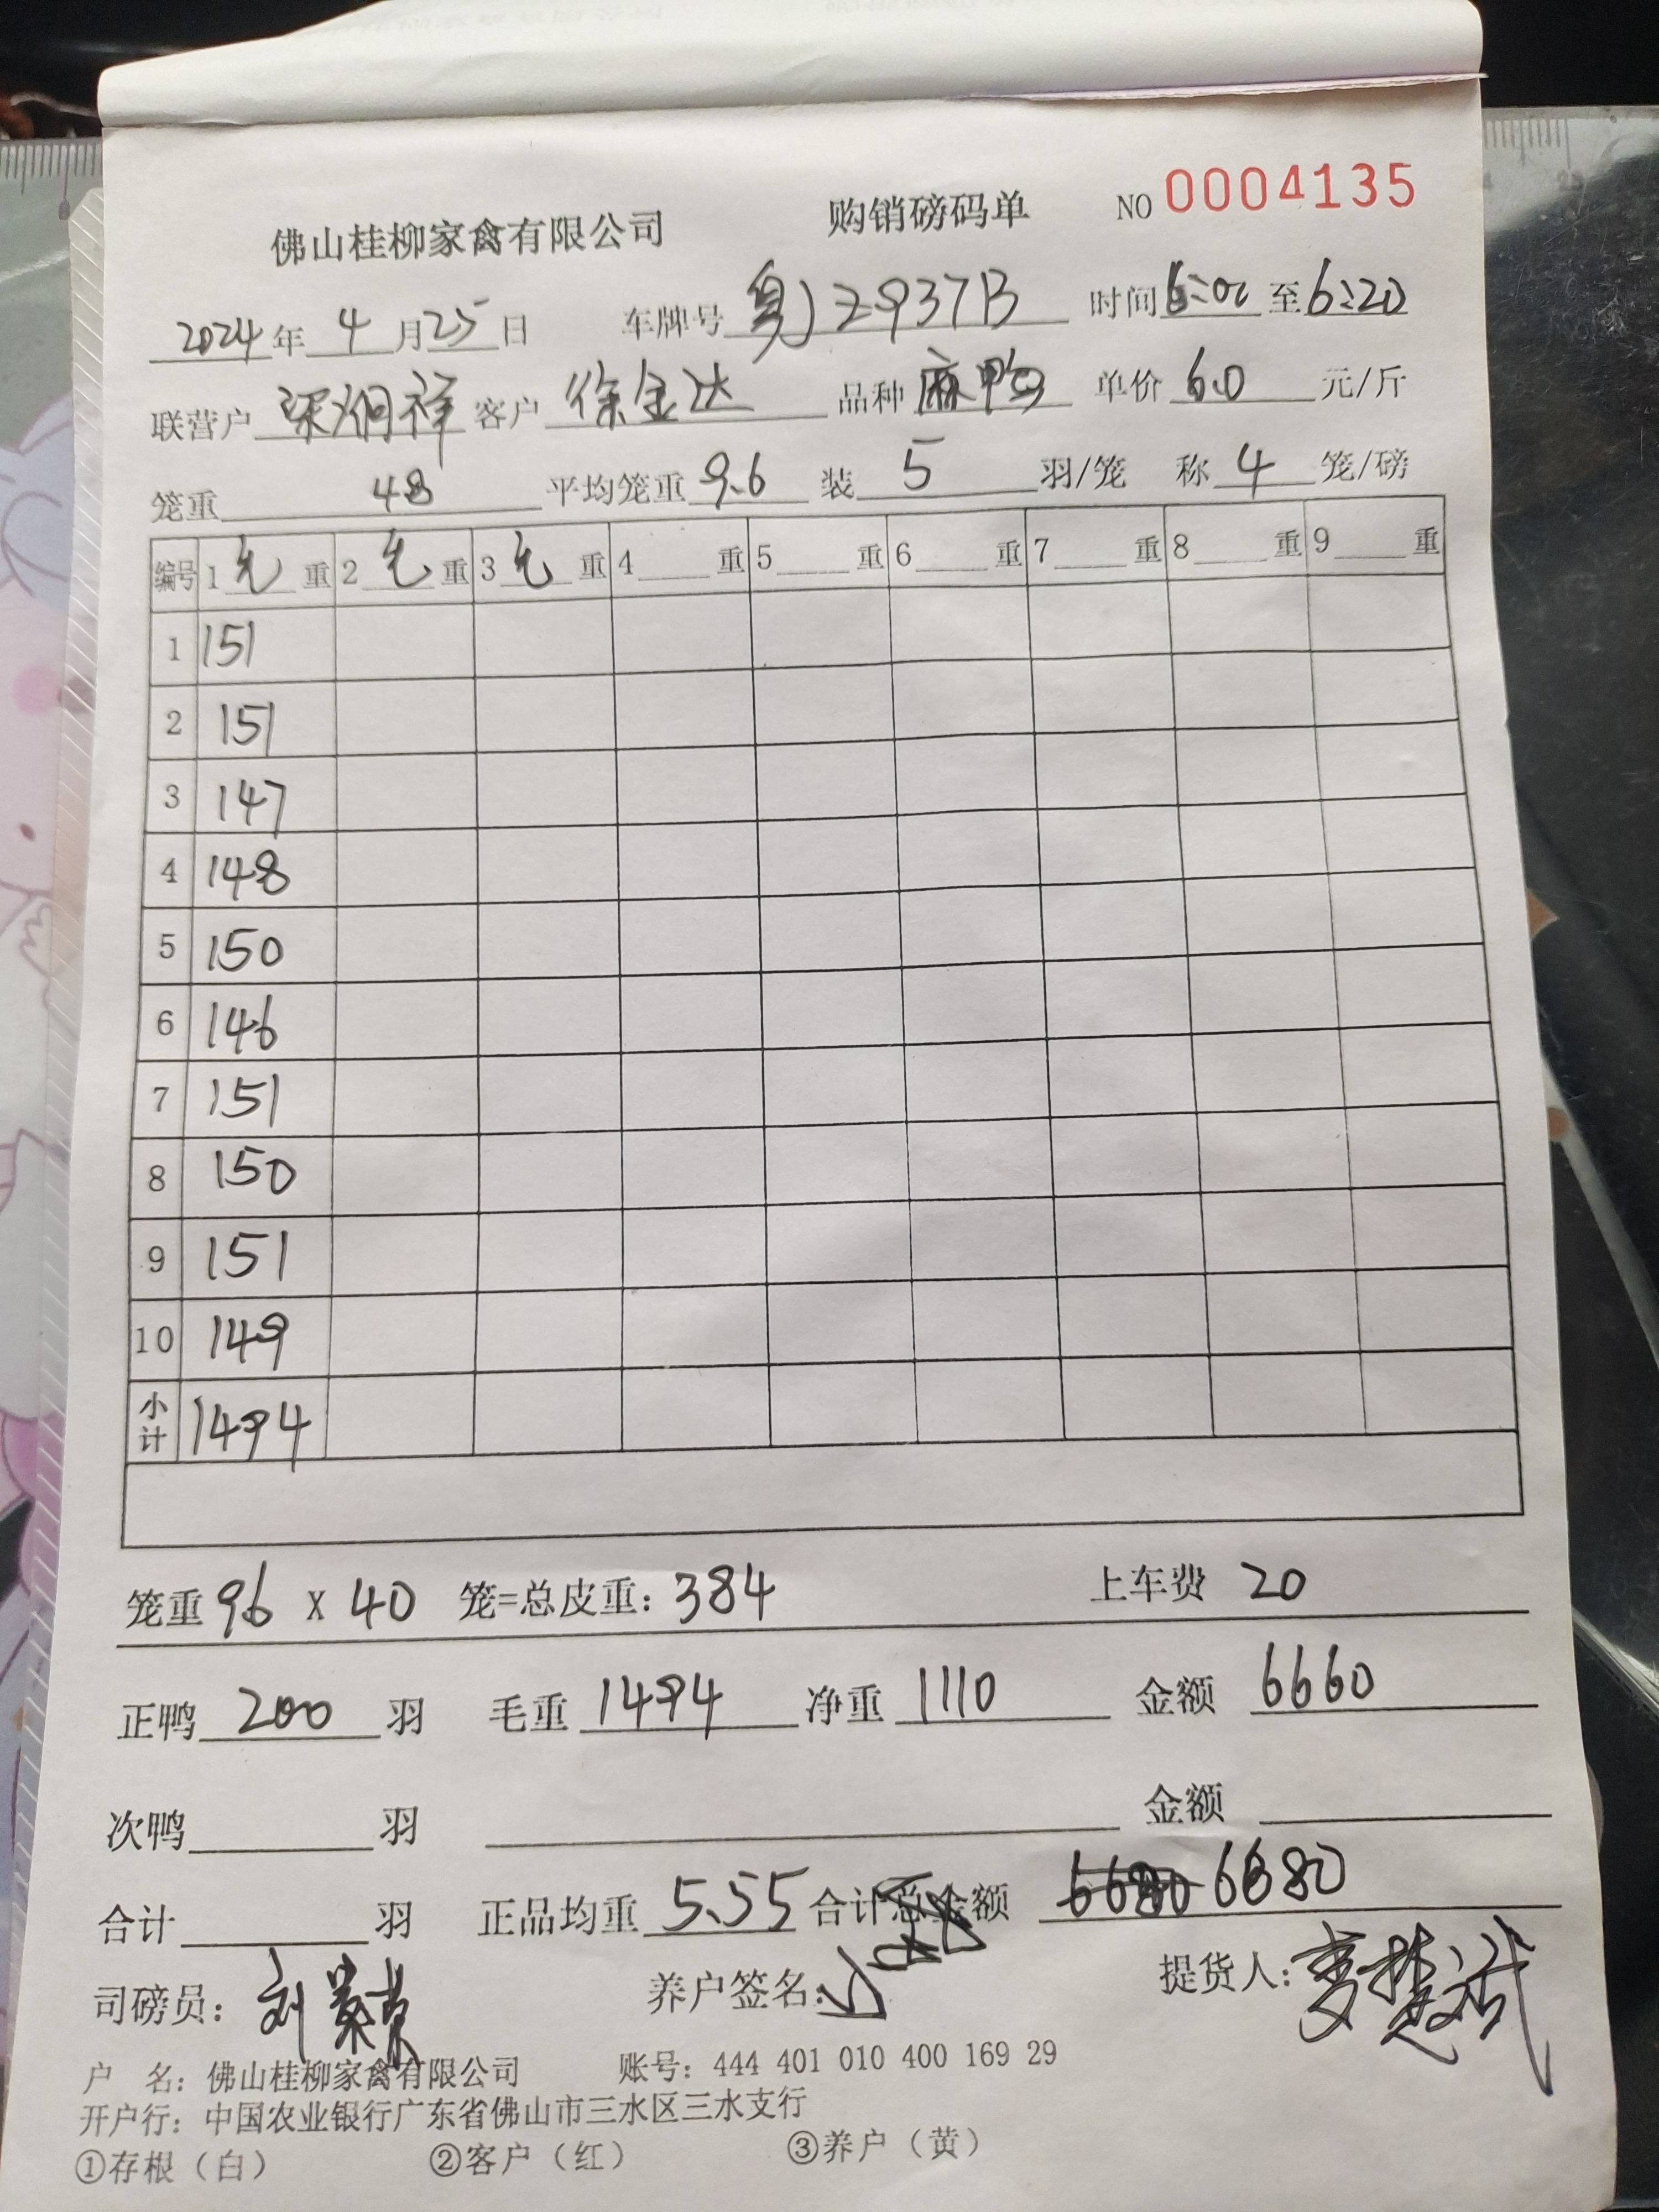 佛山桂柳家禽有限公司 购销磅码单 NO 0004135
2024年 4 月 25 日 车牌号 粤J2937B 时间 6:00 至 6:20
联营户 梁炯祥 客户 徐金达 品种 麻鸭 单价 6.0 元/斤
笼重 48 平均笼重 9.6 装 5 羽/笼 称 4 笼/磅
编号 1 毛 重 2 毛 重 3 毛 重 4 重 5 重 6 重 7 重 8 重 9 重
1 151
2 151
3 147
4 148
5 150
6 146
7 151
8 150
9 151
10 149
小计 1494
笼重 9.6 X 40 笼=总皮重: 384 上车费 20
正鸭 200 羽 毛重 1494 净重 1110 金额 6660
次鸭 羽 金额
合计 羽 正品均重 5.55 合计总金额 6680
司磅员: 养户签名: 提货人:
户 名: 佛山桂柳家禽有限公司 账号: 444 401 010 400 169 29
开户行: 中国农业银行广东省佛山市三水区三水支行
①存根（白） ②客户（红） ③养户（黄）